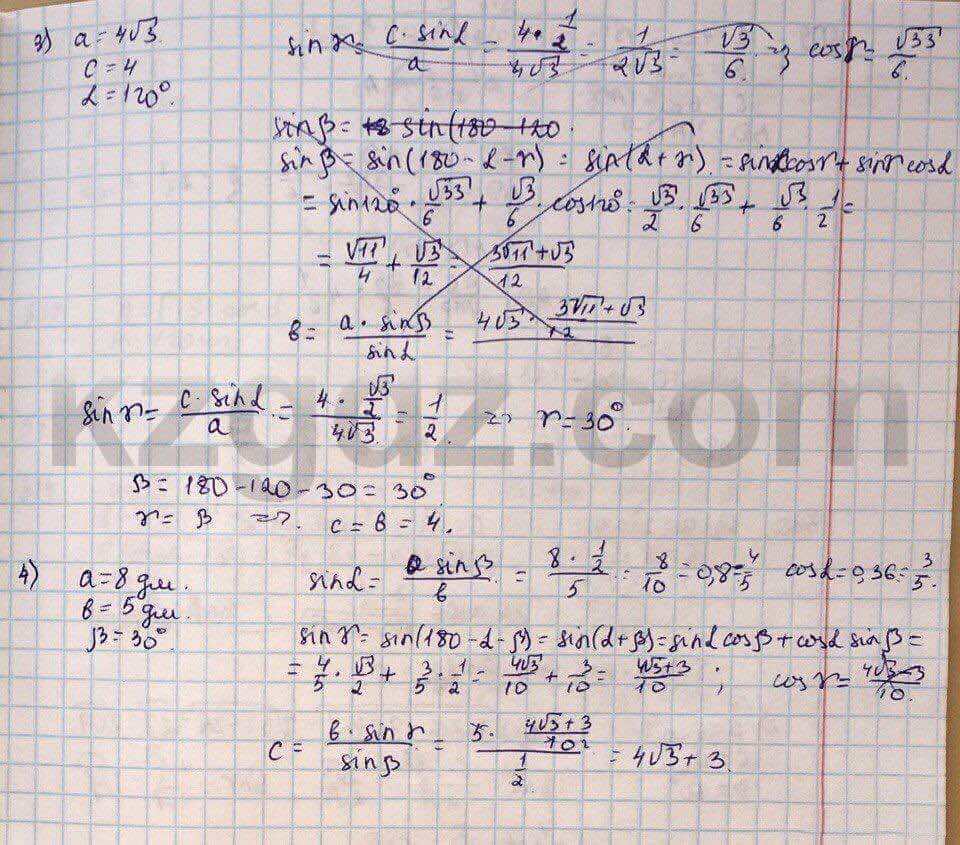 3) a = 4√3
c = 4
α = 120°.
sin γ = (c · sin α)/a = (4 · 1/2)/(4√3) = 1/(2√3) = √3/6 ⇒ cos γ = √33/6.
sin β = sin(180 - 120.
sin β = sin(180 - α - γ) = sin(α + γ) = sin α cos γ + sin γ cos α
= sin 120° · √33/6 + √3/6 · cos 120° = √3/2 · √33/6 + √3/6 · 1/2 =
= √11/4 + √3/12 = (3√11 + √3)/12
в = (a · sin β)/(sin α) = 4√3 · (3√11 + √3)/12
sin γ = (c · sin α)/a = (4 · √3/2)/(4√3) = 1/2. ⇒ γ = 30°.
kzgdz.com
β = 180 - 120 - 30 = 30°
γ = β ⇒ c = в = 4.
4) a = 8 дм.
в = 5 дм.
β = 30°
sin α = (a sin β)/в = (8 · 1/2)/5 = 8/10 = 0,8 = 4/5 cos α = 0,36 = 3/5.
sin γ = sin(180 - α - β) = sin(α + β) = sin α cos β + cos α sin β =
= 4/5 · √3/2 + 3/5 · 1/2 = 4√3/10 + 3/10 = (4√3 + 3)/10 ; cos γ = (4√3 - 3)/10.
c = (в · sin γ)/(sin β) = (5 · (4√3 + 3)/10 2)/(1/2) = 4√3 + 3.